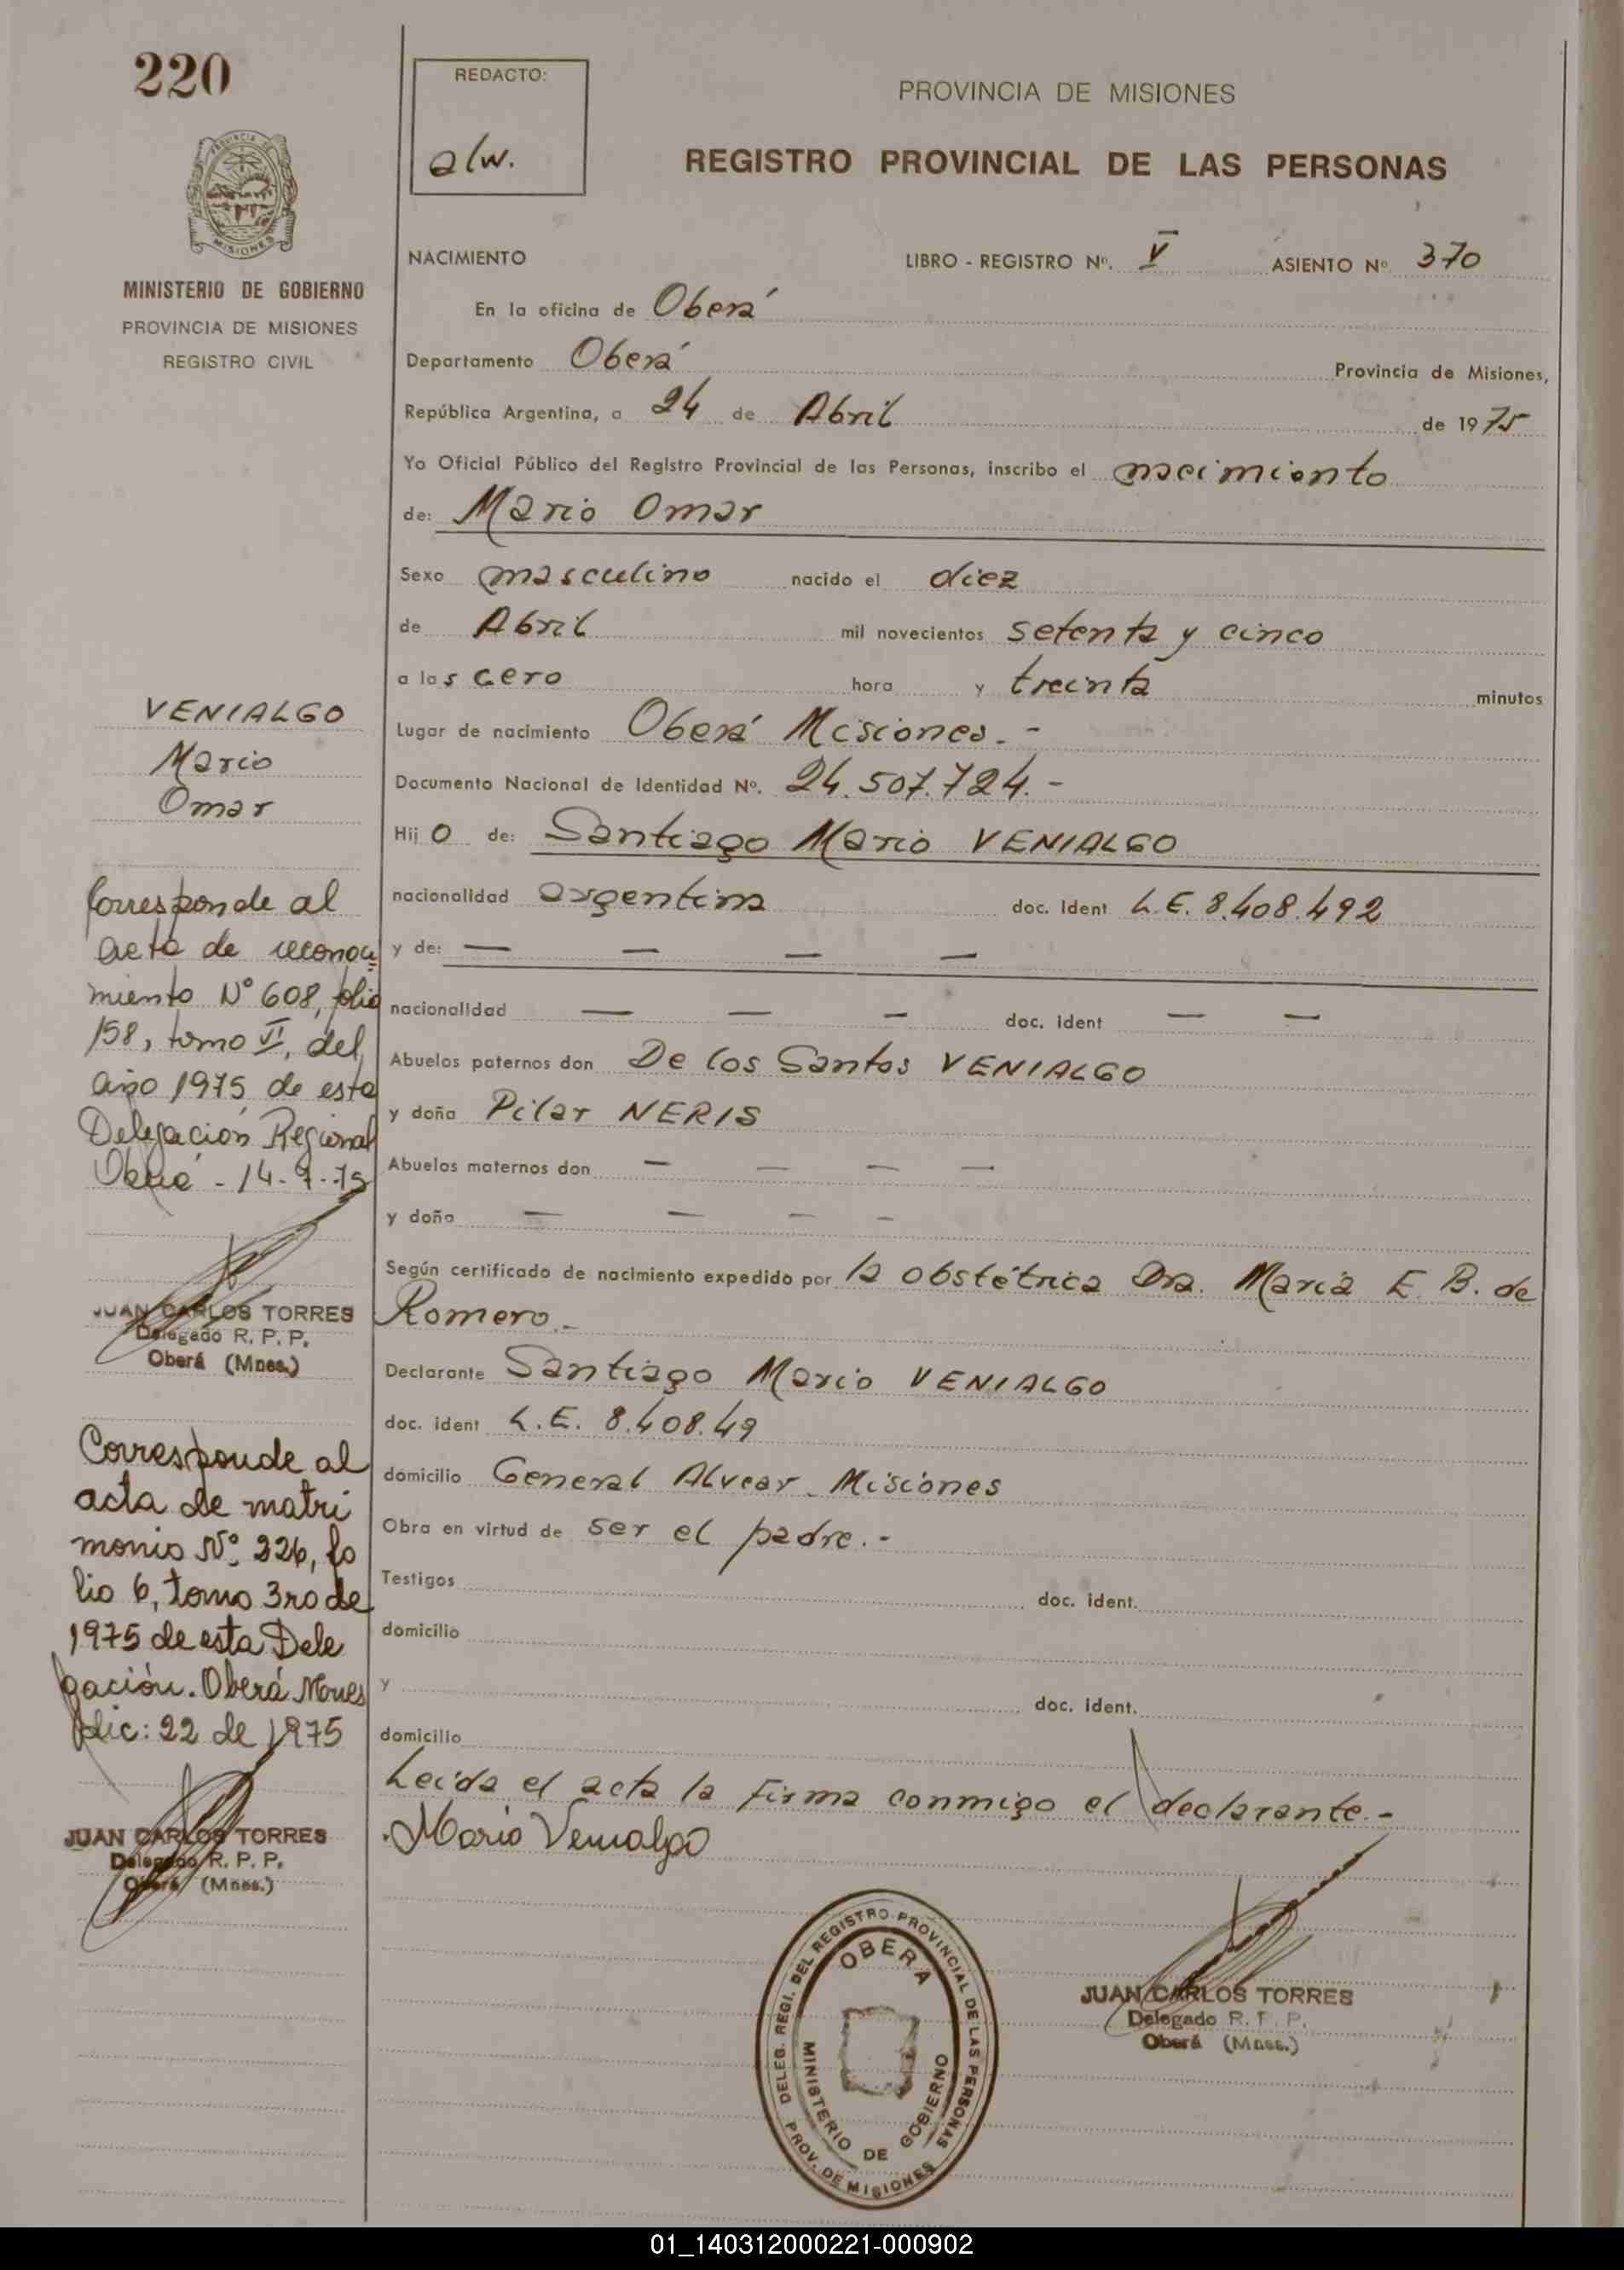 220
REDACTO:
alw.
PROVINCIA DE MISIONES
REGISTRO PROVINCIAL DE LAS PERSONAS
PROVINCIA DE
MISIONES
MINISTERIO DE GOBIERNO
PROVINCIA DE MISIONES
REGISTRO CIVIL
NACIMIENTO LIBRO - REGISTRO Nº. V ASIENTO Nº 370
En la oficina de Oberá
Departamento Oberá Provincia de Misiones,
República Argentina, a 24 de Abril de 1975
Yo Oficial Público del Registro Provincial de las Personas, inscribo el nacimiento
de: Mario Omar
Sexo masculino nacido el diez
de Abril mil novecientos setenta y cinco
a las cero hora y treinta minutos
Lugar de nacimiento Oberá Misiones.-
Documento Nacional de Identidad Nº. 24.507.724.-
Hijo de: Santiago Mario VENIALGO
nacionalidad argentina doc. Ident L.E. 8.408.492
y de: — — — —
nacionalidad — — — doc. ident — —
Abuelos paternos don De los Santos VENIALGO
y doña Pilar NERIS
Abuelos maternos don — — — —
y doña — — — —
Según certificado de nacimiento expedido por la obstétrica Dra. María E. B. de
Romero.-
Declarante Santiago Mario VENIALGO
doc. ident L.E. 8.408.49
domicilio General Alvear - Misiones
Obra en virtud de ser el padre.-
Testigos doc. ident.
domicilio
y doc. ident.
domicilio
Leida el acta la firma conmigo el declarante.-
Mario Venialgo
VENIALGO
Mario
Omar
Corresponde al
acta de reconoci
miento Nº 608, folio
158, tomo VI, del
año 1975 de esta
Delegación Regional
Oberá - 14-9-75
JUAN CARLOS TORRES
Delegado R. P. P.
Oberá (Mnes.)
Corresponde al
acta de matri
monio Nº 226, fo
lio 6, tomo 3ro de
1975 de esta Dele
gación. Oberá Mnes
dic: 22 de 1975
JUAN CARLOS TORRES
Delegado R. P. P.
Oberá (Mnes.)
DELEG. REGI. DEL REGISTRO PROVINCIAL DE LAS PERSONAS
OBERA
MINISTERIO DE GOBIERNO
PROV. DE MISIONES
JUAN CARLOS TORRES
Delegado R. P. P.
Oberá (Mnes.)
01_140312000221-000902